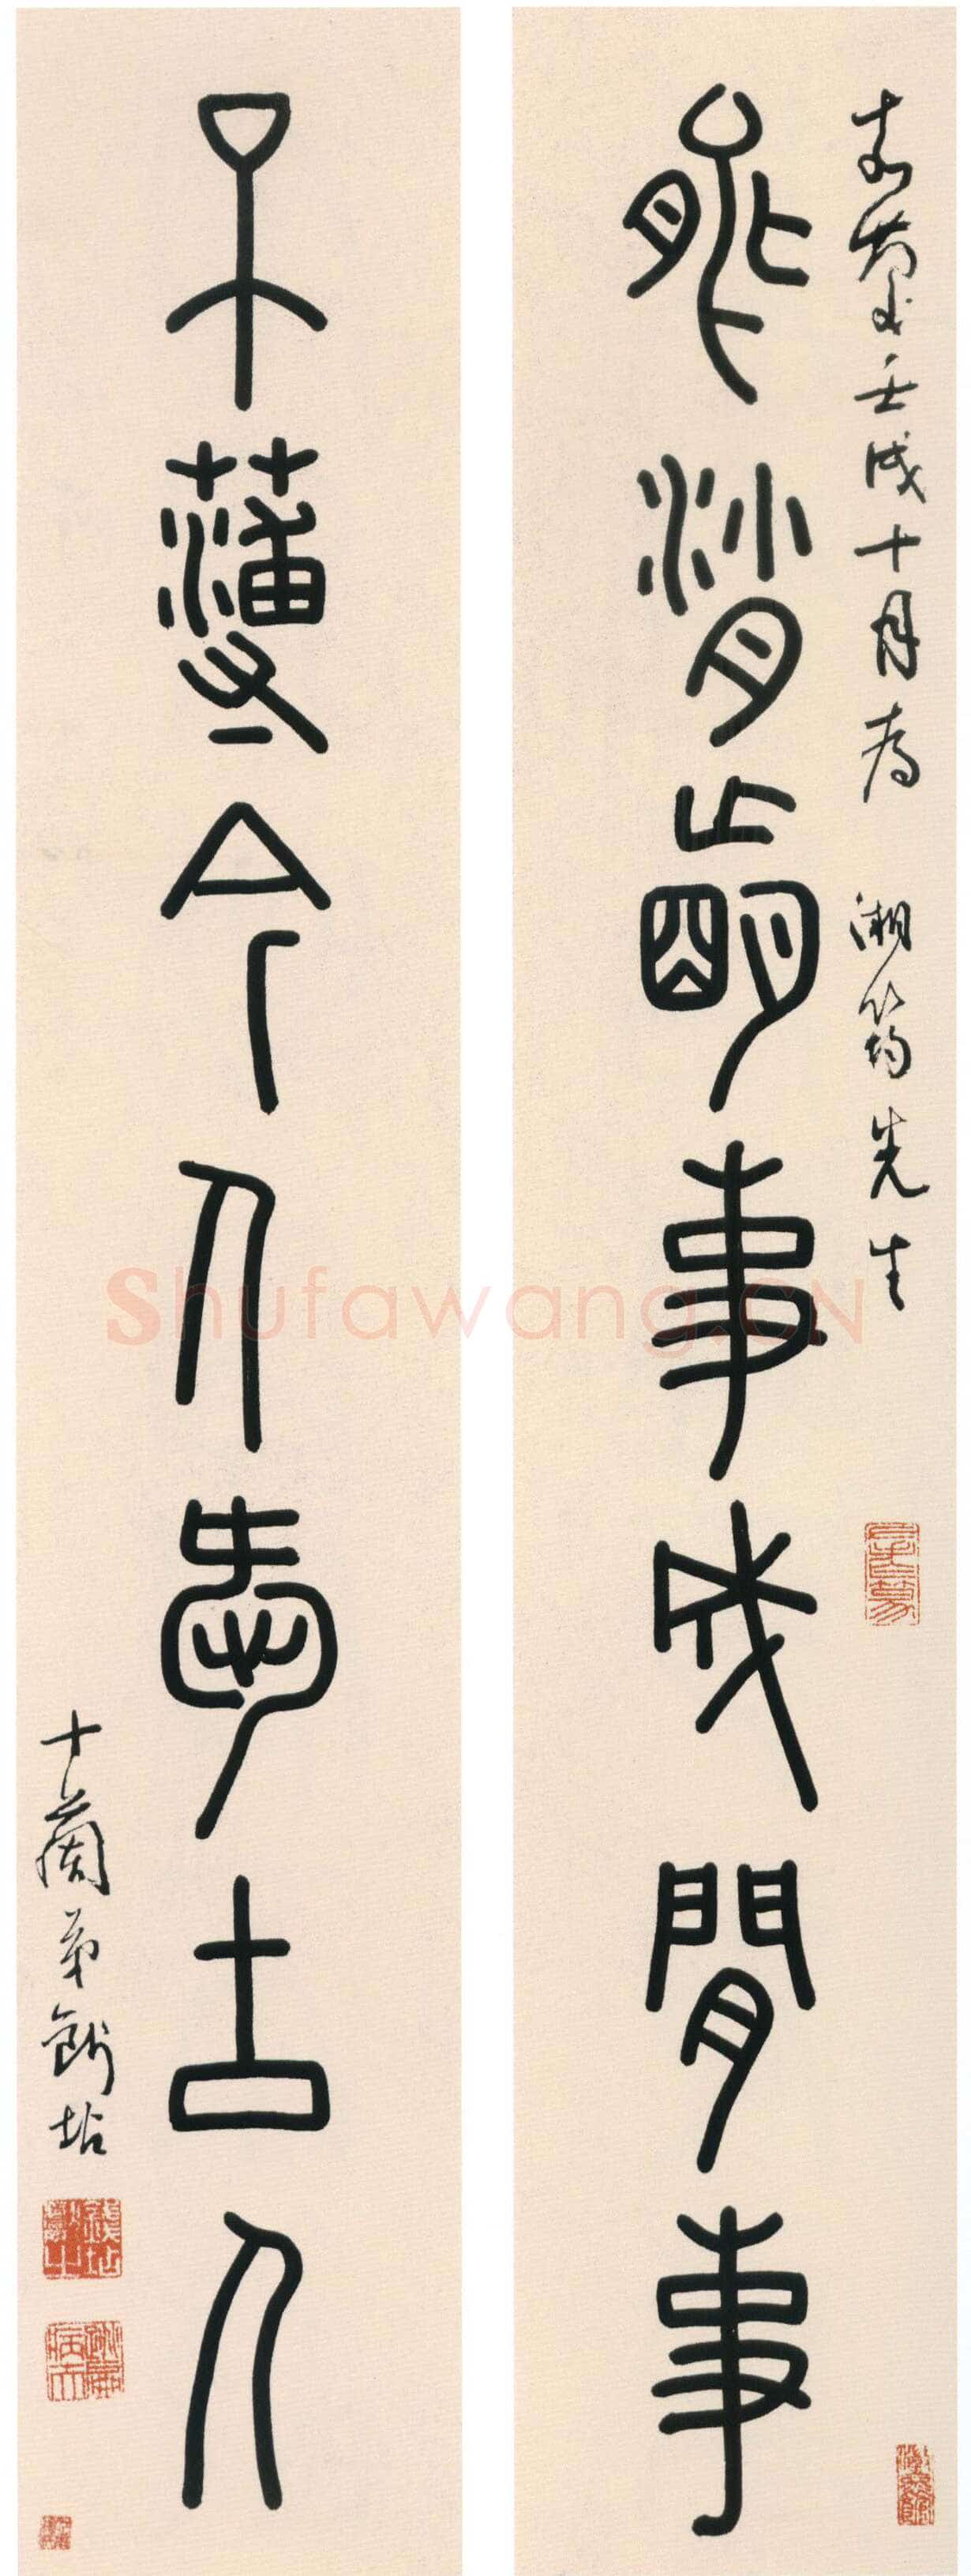 嘉慶歲壬戌十月為 湘筠先生
能消朚事成閒事
不薄今人愛古人
十蘭弟錢坫
Shufawang.CN